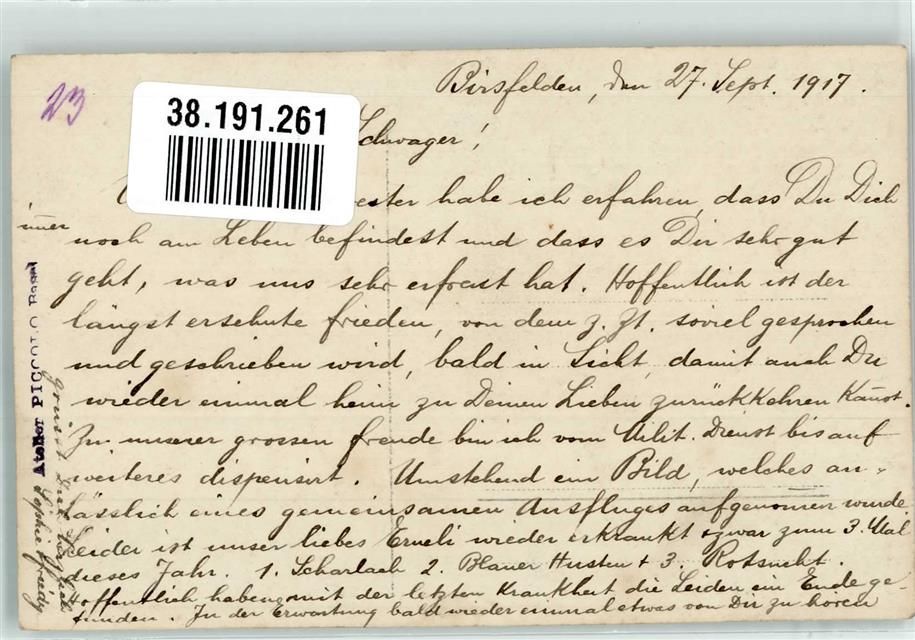 23
38.191.261
Birsfelden, den 27. Sept. 1917.
Schwager!
ester habe ich erfahren, dass Du Dich
noch am Leben befindest und dass es Dir sehr gut
geht, was uns sehr erfreut hat. Hoffentlich ist der
längst ersehnte Frieden, von dem z. Zt. soviel gesprochen
und geschrieben wird, bald in Sicht, damit auch Du
wieder einmal heim zu Deinen Lieben zurückkehren kannst.
Zu unserer grossen Freude bin ich vom Milit. Dienst bis auf
weiteres dispensirt. Umstehend ein Bild, welches an-
lässlich eines gemeinsamen Ausfluges aufgenommen wurde.
Leider ist unser liebes Erneli wieder erkrankt & zwar zum 3. Mal
dieses Jahr. 1. Scharlach 2. Blauer Husten & 3. Rotsucht.
Hoffentlich haben mit der letzten Krankheit die Leiden ein Ende ge-
funden. In der Erwartung bald wieder einmal etwas von Dir zu hören
grüsst Dich herzlich
Sophie
Atelier PICCOLO Basel